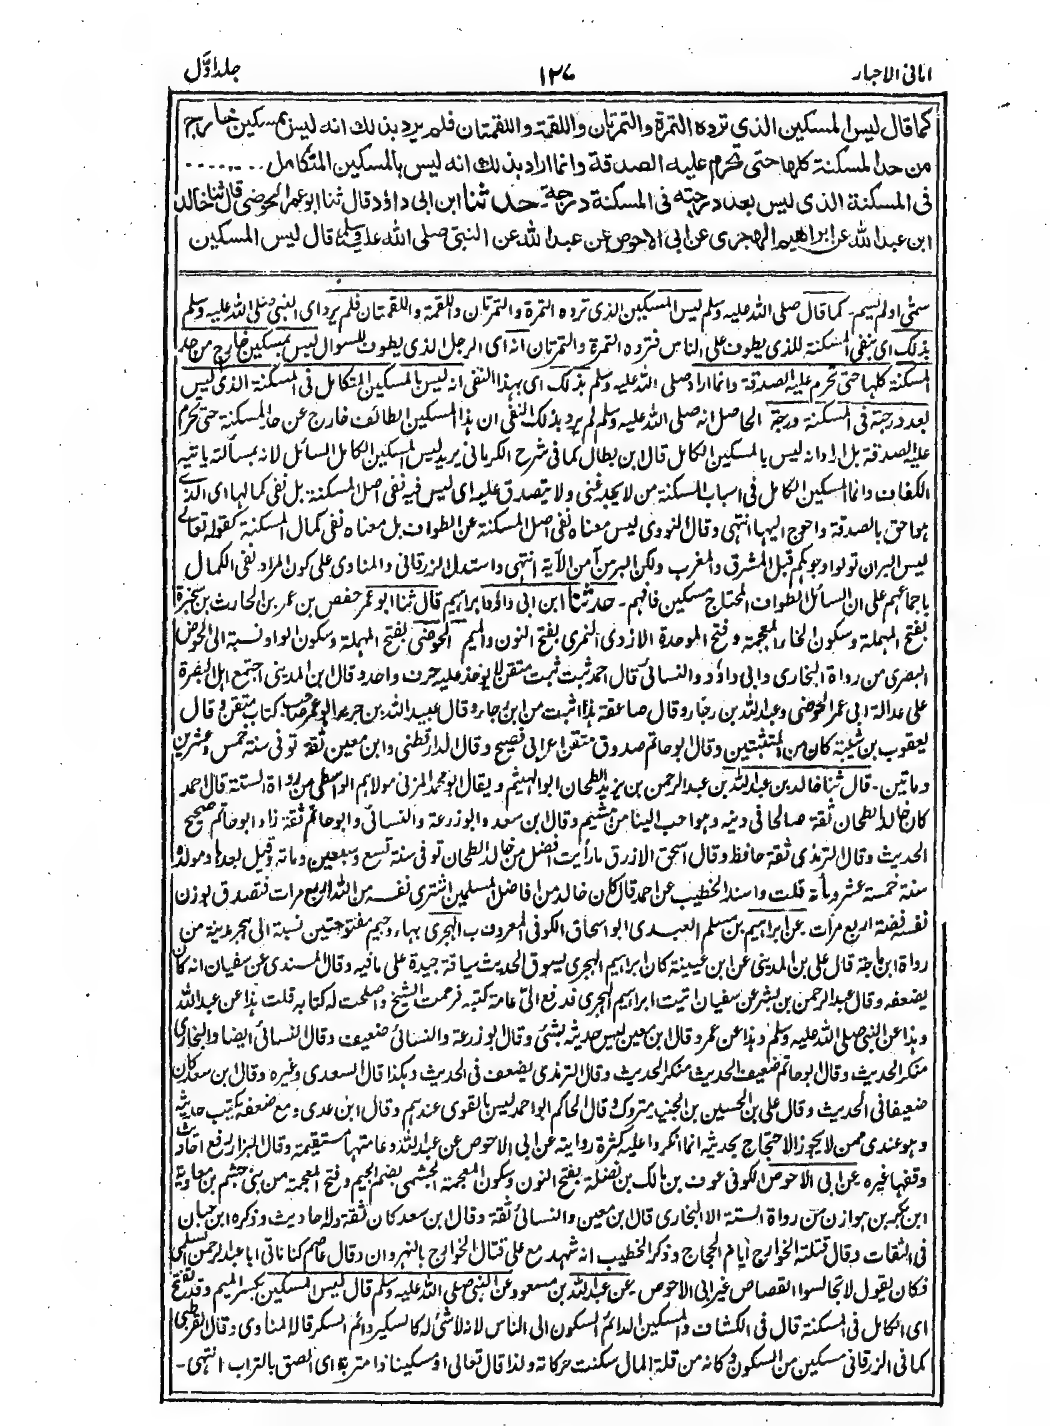 امانی الاحبار
۱۲۷
جلد اوّل
كما قال ليس المسكين الذي ترده التمرة والتمرتان واللقمة واللقمتان فلم يرد بذلك انه ليس بمسكين خارج
من حد المسكنة كلها حتى تحرم عليه الصدقة وانما اراد بذلك انه ليس بالمسكين المتكامل ........
فى المسكنة الذى ليس بعد درجته فى المسكنة درجة حدثنا ابن ابى داؤد قال ثنا ابو عمر الحوضى قال ثنا خالد
ابن عبد الله عن ابراهيم الهجرى عن ابى الاحوص عن عبد الله عن النبى صلى الله عليه وسلم قال ليس المسكين
سمى اولم يسم۔ كما قال صلى الله عليه وسلم ليس المسكين الذى ترده التمرة والتمرتان واللقمة واللقمتان فلم يرد اى النبى صلى الله عليه وسلم
بذلك اى بنفى المسكنة للذى يطوف على الناس فترده التمرة والتمرتان انه اى الرجل الذى يطوف للسوال ليس بمسكين خارج من حد
المسكنة كلها حتى تحرم عليه الصدقة وانما اراد صلى الله عليه وسلم بذلك اى بهذا النفى انه ليس بالمسكين المتكامل فى المسكنة الذى ليس
بعد درجة فى المسكنة درجة الحاصل انه صلى الله عليه وسلم لم يرد بذلك النفى ان هذا المسكين الطائف خارج عن حد المسكنة حتى تحرم
عليه الصدقة بل اراد انه ليس بالمسكين الكامل قال ابن بطال كما فى شرح الكرمانى يريد ليس المسكين الكامل السائل لانه بمسألته ياتيه
الكفاف وانما المسكين الكامل فى اسباب المسكنة من لا يجد غنى ولا يتصدق عليه اى ليس فيه نفى اصل المسكنة بل نفى كمالها اى الذى
هو احق بالصدقة واحوج اليها انتهى وقال النووى ليس معناه نفى اصل المسكنة عن الطواف بل معناه نفى كمال المسكنة كقوله تعالى
ليس البر ان تولوا وجوهكم قبل المشرق والمغرب ولكن البر من آمن الآية انتهى واستدل الزرقانى والمناوى على كون المراد نفى الكمال
باجماعهم على ان السائل الطواف المحتاج مسكين فافهم۔ حدثنا ابن ابى داؤد ابراهيم قال ثنا ابو عمر حفص بن عمر بن الحارث بن سخبرة
بفتح المهملة وسكون الخاء المعجمة وفتح الموحدة الازدى النمرى بفتح النون والميم الحوضى بفتح المهملة وسكون الواو نسبة الى الحوض
البصرى من رواة البخارى وابى داؤد والنسائى قال احمد ثبت ثبت متقن لا يوخذ عليه حرف واحد وقال ابن المدينى اجتمع اهل البصرة
على عدالة ابى عمر الحوضى وعبد الله بن رجاء وقال صاعقة هذا اثبت من ابن رجاء وقال عبيد الله بن جرير ابو عمر صاحب كتاب متقن وقال
يعقوب بن شيبة كان من المتثبتين وقال ابو حاتم صدوق متقن اعرابى فصيح وقال الدارقطنى وابن معين ثقة توفى سنة خمس وعشرين
ومأتين۔ قال ثنا خالد بن عبد الله بن عبد الرحمن بن يزيد الطحان ابو الهيثم ويقال ابو محمد المزنى مولاهم الواسطى من رواة الستة قال احمد
كان خالد الطحان ثقة صالحا فى دينه وهو احب الينا من هشيم وقال ابن سعد وابو زرعة والنسائى وابو حاتم ثقة زاد ابو حاتم صحيح
الحديث وقال الترمذى ثقة حافظ وقال اسحق الازرق ما رأيت افضل من خالد الطحان توفى سنة تسع وسبعين ومأته وقيل بعدها ومولده
سنة خمسة عشر ومأة قلت واسند الخطيب عن احمد قال كان خالد من افاضل المسلمين اشترى نفسه من الله اربع مرات فتصدق بوزن
نفسه فضة اربع مرات عن ابراهيم بن مسلم العبدى ابو اسحاق الكوفى المعروف بالهجرى بهاء وجيم مفتوحتين نسبة الى هجر مدينة من
رواة ابن ماجة قال على بن المدينى عن ابن عيينة كان ابراهيم الهجرى يسوق الحديث سياقة جيدة على مافيه وقال المسندى عن سفيان انه كان
يضعفه وقال عبد الرحمن بن بشر عن سفيان اتيت ابراهيم الهجرى فدفع الى عامة كتبه فرحمت الشيخ واصلحت له كتابه قلت هذا عن عبد الله
وهذا عن النبى صلى الله عليه وسلم وهذا عن عمر وقال ابن معين ليس حديثه بشئ وقال ابو زرعة والنسائى ضعيف وقال النسائى ايضا والبخارى
منكر الحديث وقال ابو حاتم ضعيف الحديث منكر الحديث وقال الترمذى يضعف فى الحديث وهكذا قال السعدى وغيره وقال ابن سعد كان
ضعيفا فى الحديث وقال على بن الحسين بن الجنيد متروك وقال الحاكم ابو احمد ليس بالقوى عندهم وقال ابن عدى ومع ضعفه يكتب حديثه
وهو عندى ممن لا يجوز الاحتجاج بحديثه انما انكروا عليه كثرة روايته عن ابى الاحوص عن عبد الله وعامتها مستقيمة وقال البزار رفع احاديث
وقفها غيره عن ابى الاحوص الكوفى عوف بن مالك بن نضلة بفتح النون وسكون المعجمة الجشمى بضم الجيم وفتح المعجمة من بنى جشم بن معاوية
ابن بكر بن هوازن من رواة الستة الا البخارى قال ابن معين والنسائى ثقة وقال ابن سعد كان ثقة وله احاديث وذكره ابن حبان
فى الثقات وقال قتلته الخوارج ايام الحجاج وذكر الخطيب انه شهد مع على قتال الخوارج بالنهروان وقال عاصم كنا ناتى ابا عبد الرحمن السلمى
فكان يقول لا تجالسوا القصاص غير ابى الاحوص عن عبد الله بن مسعود عن النبى صلى الله عليه وسلم قال ليس المسكين بكسر الميم وقد تفتح
اى الكامل فى المسكنة قال فى الكشاف والمسكين الدائم السكون الى الناس لانه لا شئ له كالسكير دائم السكر قال المناوى وقال القرطبى
كما فى الزرقانى مسكين من السكون وكانه من قلة المال سكنت حركاته ولذا قال تعالى او مسكينا ذا متربة اى لصق بالتراب انتهى۔